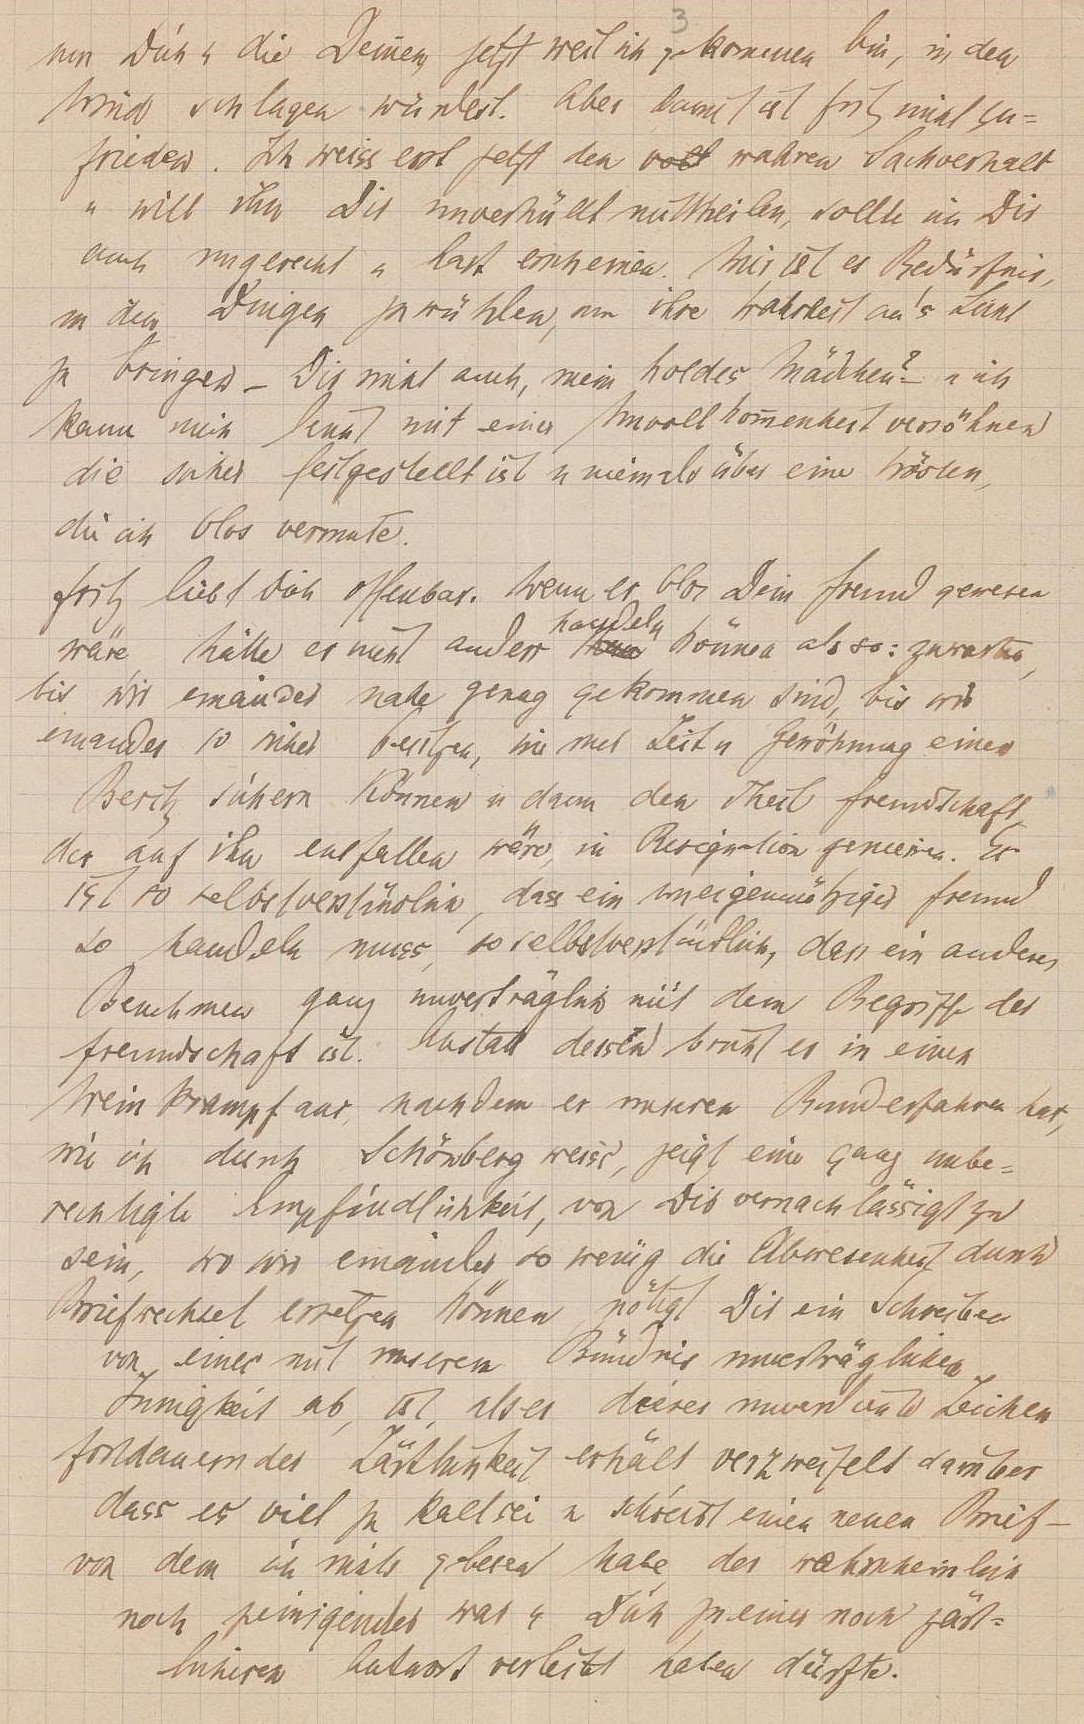 3
um Dich u die Deinen, jetzt weil ich gekommen bin, in den
Wind schlagen würdest. Aber damit ist Fritz nicht zu=
frieden. Ich weiss erst jetzt den wahren Sachverhalt
u will ihn Dir unverhüllt mittheilen, sollte ich Dir
auch ungerecht u hart erscheinen. Mir ist es Bedürfnis,
in den Dingen zu wühlen, um ihre Wahrheit an's Licht
zu bringen – Dir nicht auch, mein holdes Mädchen? – u ich
kann mich leicht mit einer Unvollkom̅enheit versöhnen
die sicher festgestellt ist u niemals über eine trösten,
die ich blos vermute.
Fritz liebt Dich offenbar. Wenn er blos Dein Freund gewesen
wäre, hätte er nicht anders handeln können als so: zuwarten,
bis wir einander nahe genug gekommen sind, bis wir
einander so sicher besitzen, wie nur Zeit u Gewöhnung einen
Besitz sichern können u dann den Theil Freundschaft,
der auf ihn entfallen wäre, in Resignation geniessen. Es
ist so selbstverständlich, dass ein uneigennütziger Freund
so handeln muss, so selbstverständlich, dass ein anderes
Benehmen ganz unverträglich mit dem Begriffe der
Freundschaft ist. Anstatt dessen bricht er in einen
Weinkrampf aus, nachdem er unseren Bund erfahren hat,
wie ich durch Schönberg weiss, zeigt eine ganz unbe=
rechtigte Empfindlichkeit, von Dir vernachlässigt zu
sein, wo wir einander so wenig die Abwesenheit durch
Briefwechsel ersetzen können, nötigt Dir ein Schreiben
von einer mit unserem Bündnis unverträglichen
Innigkeit ab, ist, als er dieses unverdiente Zeichen
fortdauernder Zärtlichkeit erhält verzweifelt darüber
dass es viel zu kalt sei u schreibt einen neuen Brief –
von dem ich nichts gelesen habe, der wahrscheinlich
noch peinigender war u Dich zu einer noch zärt=
licheren Antwort verleitet haben dürfte.